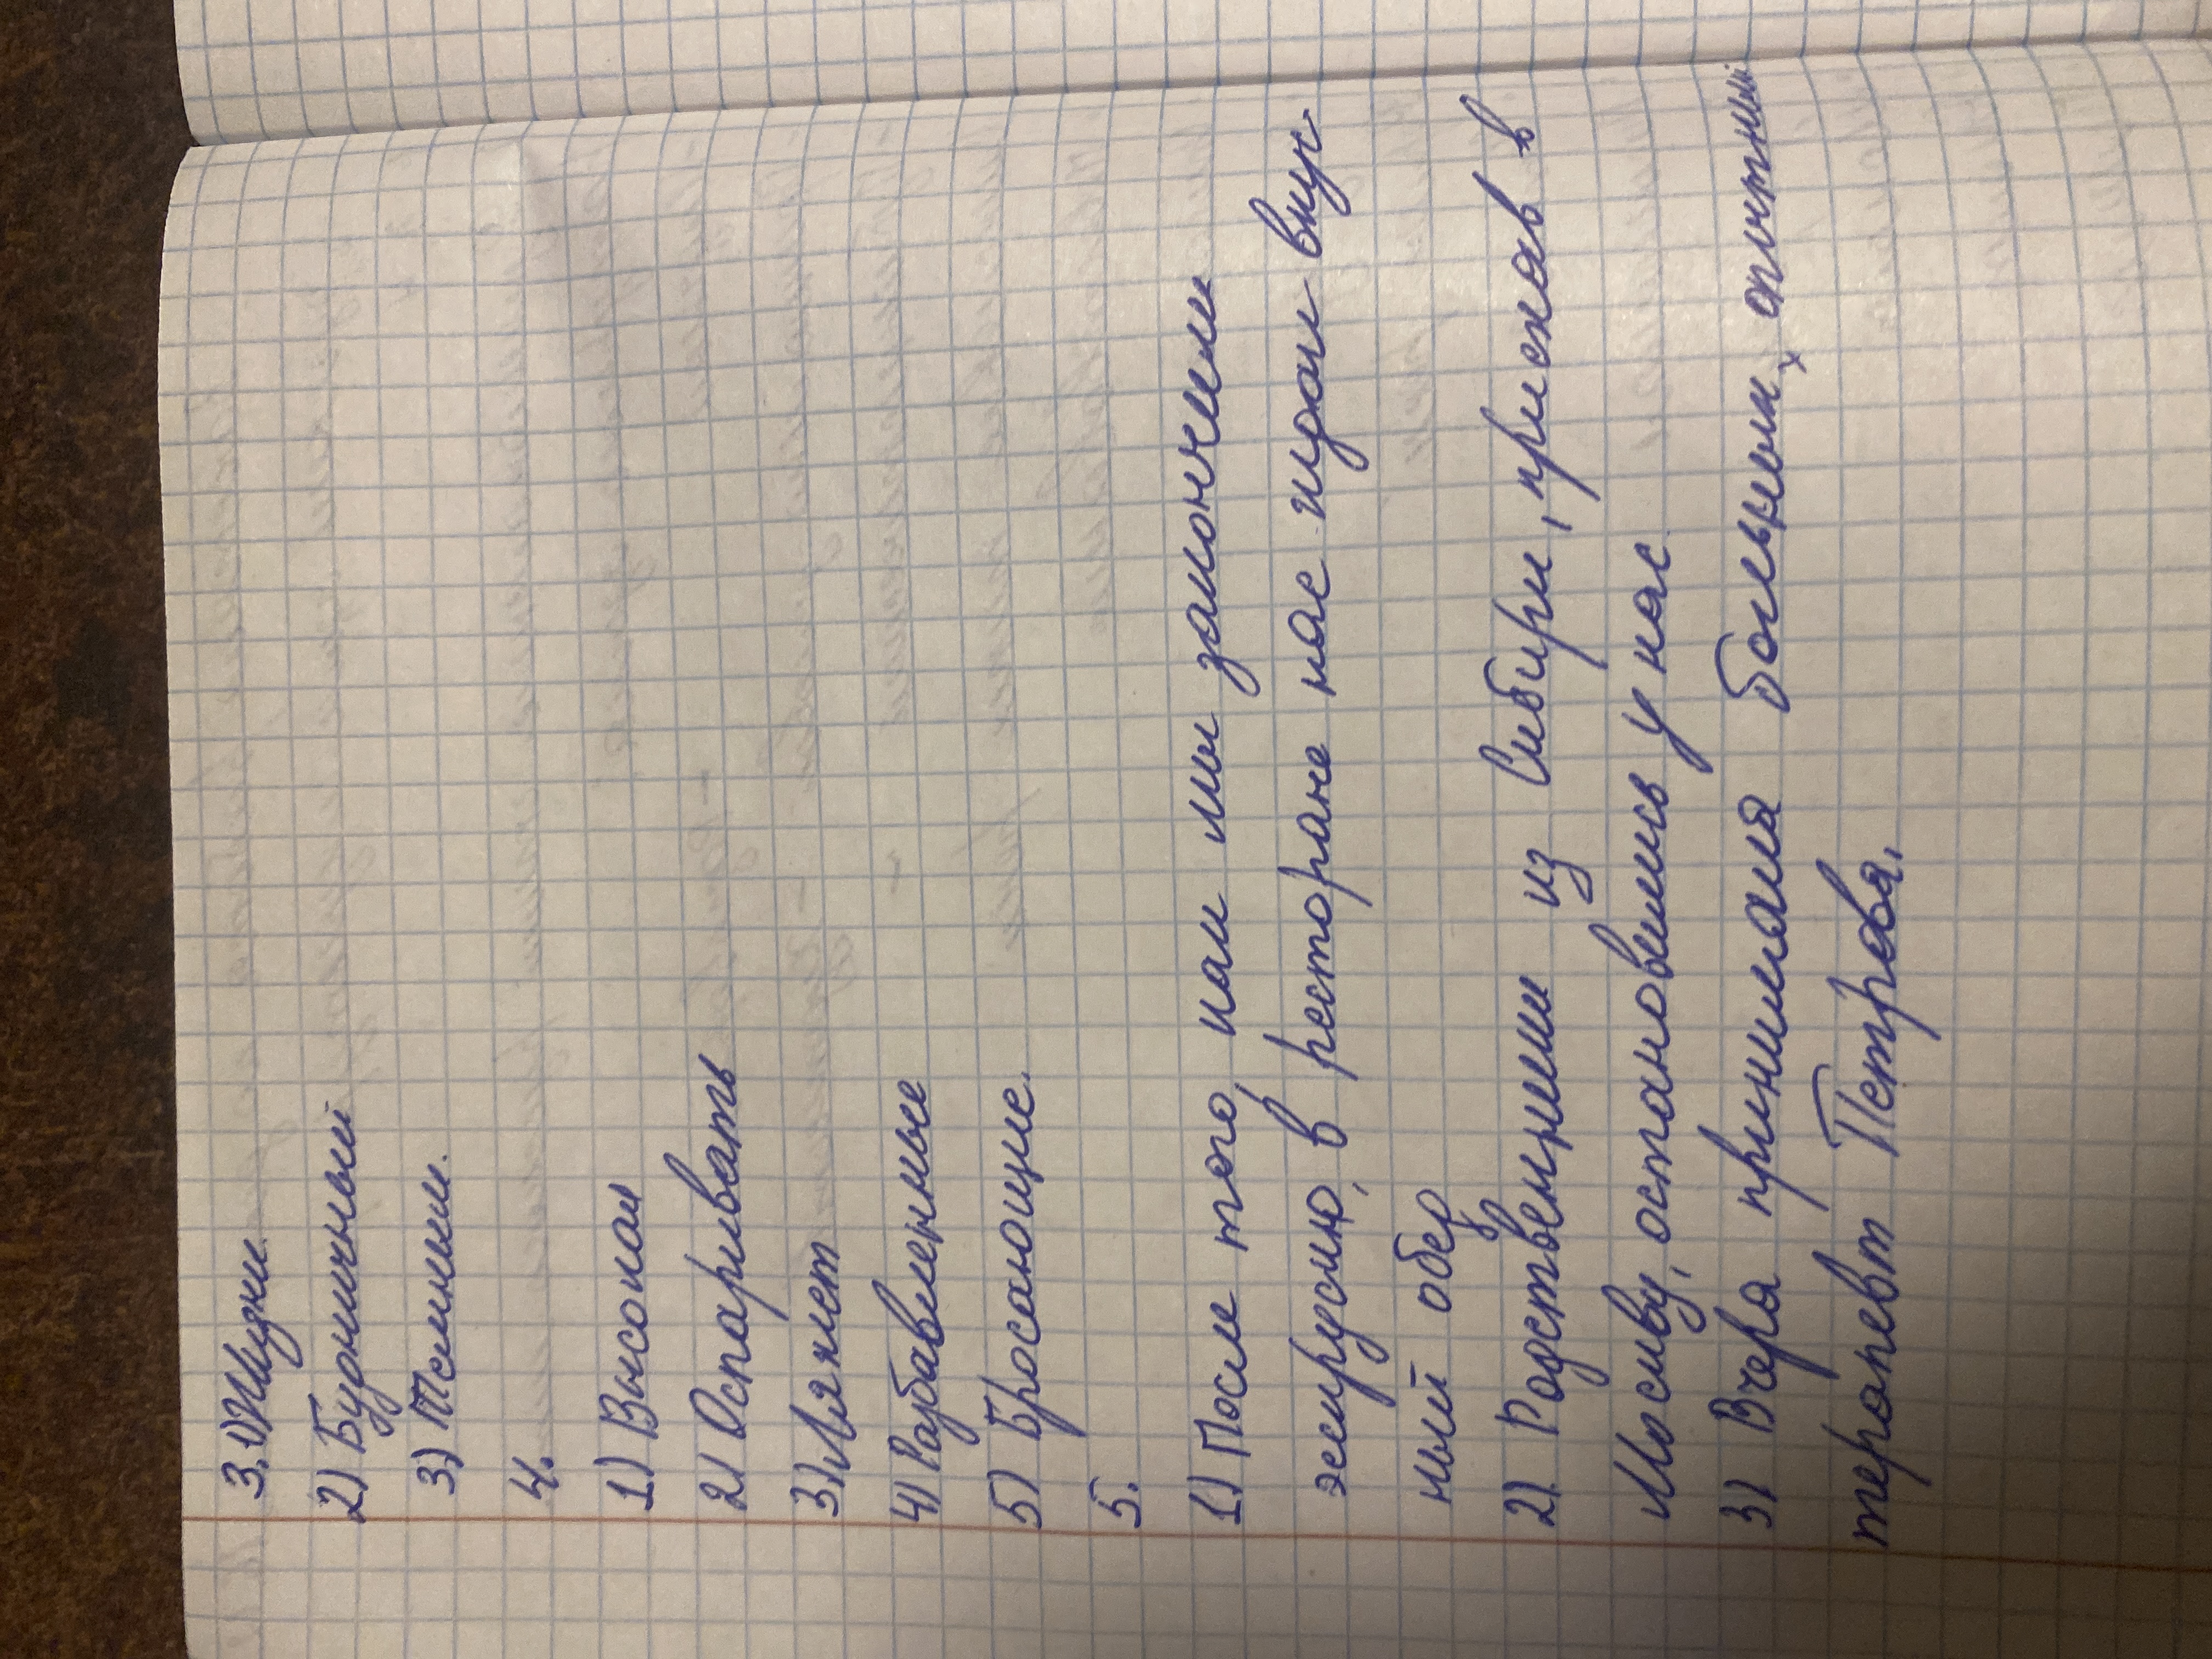 3. 1) Жизни.
2) Будничный
3) Темним.
4.
1) Высокая
2) Оспаривать
3) Ляжет
4) Разбавленные
5) Бросающие.
5.
1) После того, как мы закончим
экскурсию, в ресторане нас ждал вкус-
ный обед
2) Родственники из Сибири, приехав в
Москву, остановились у нас.
3) Вчера принимала больных опытный
терапевт Петрова.